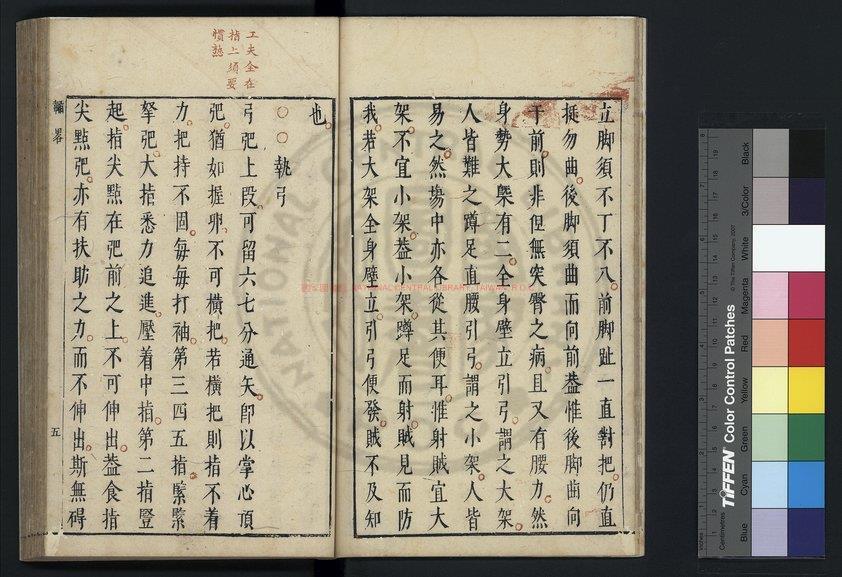 立脚須不丁不八前脚趾一直對把仍直
挺勿曲後脚須曲而向前葢惟後脚曲向
于前則非但無突臀之病且又有腰力然
身勢大槩有二全身壁立引弓謂之大架
人皆難之蹲足直腰引弓謂之小架人皆
易之然塲中亦各從其便耳惟射賊宜大
架不宜小架葢小架蹲足而射賊見而防
我若大架全身壁立引弓便發賊不及知
也
工夫全在
指上須要
慣熟
○○執弓
弓弝上段可留六七分通矢卽以掌心頂
弝猶如握卵不可橫把若橫把則指不着
力把持不固每每打袖第三四五指緊緊
拏弝大指悉力追進壓着中指第二指豎
起指尖點在弝前之上不可伸出葢食指
尖點弝亦有扶助之力而不伸出斯無碍
畧
五
NATIONAL CENTRAL LIBRARY, TAIWAN, R.O.C.
TIFFEN Color Control Patches
© The Tiffen Company, 2007
Centimetres
Inches
Blue
Cyan
Green
Yellow
Red
Magenta
White
3/Color
Black